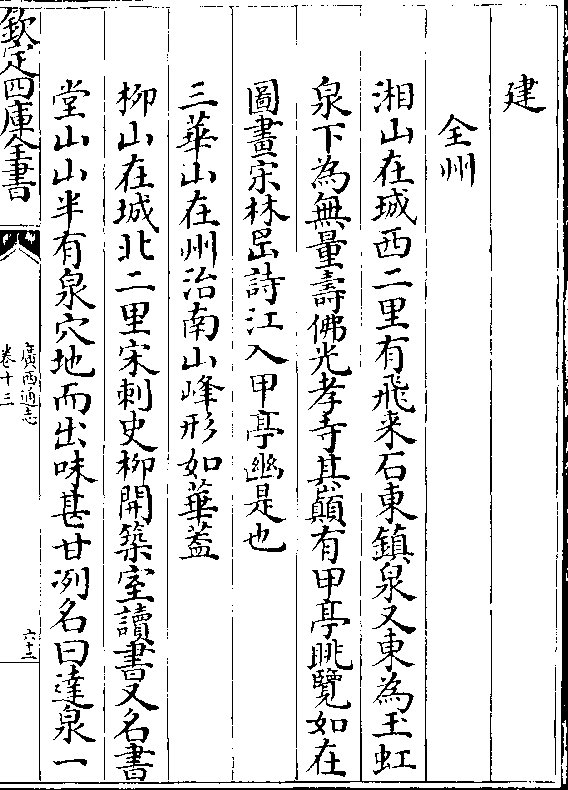 建
全州
湘山在城西二里有飛来石東鎮泉又東為玉虹
泉下為無量壽佛光孝寺其巔有甲亭眺覽如在
圖畫宋林岊詩江入甲亭幽是也
三華山在州治南山峰形如華蓋
柳山在城北二里宋刺史柳開築室讀書又名書
堂山山半有泉穴地而出味甚甘冽名曰達泉一
欽定四庫全書
廣西通志
卷十三
六十三